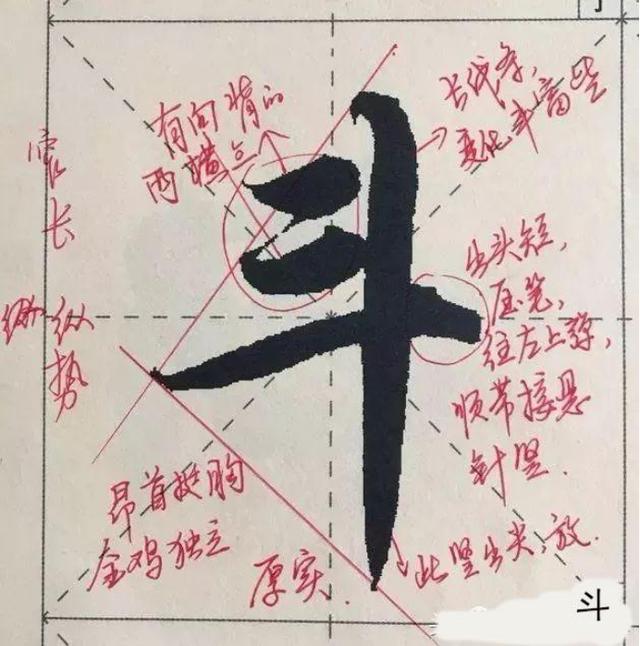 有向背的
两横点
长线条,
变化丰富些
窄长
纵势
出头短,
压笔,
往左上弹,
顺带接悬
针竖.
昂首挺胸
金鸡独立
厚实.
此竖出尖,放.
斗
斗